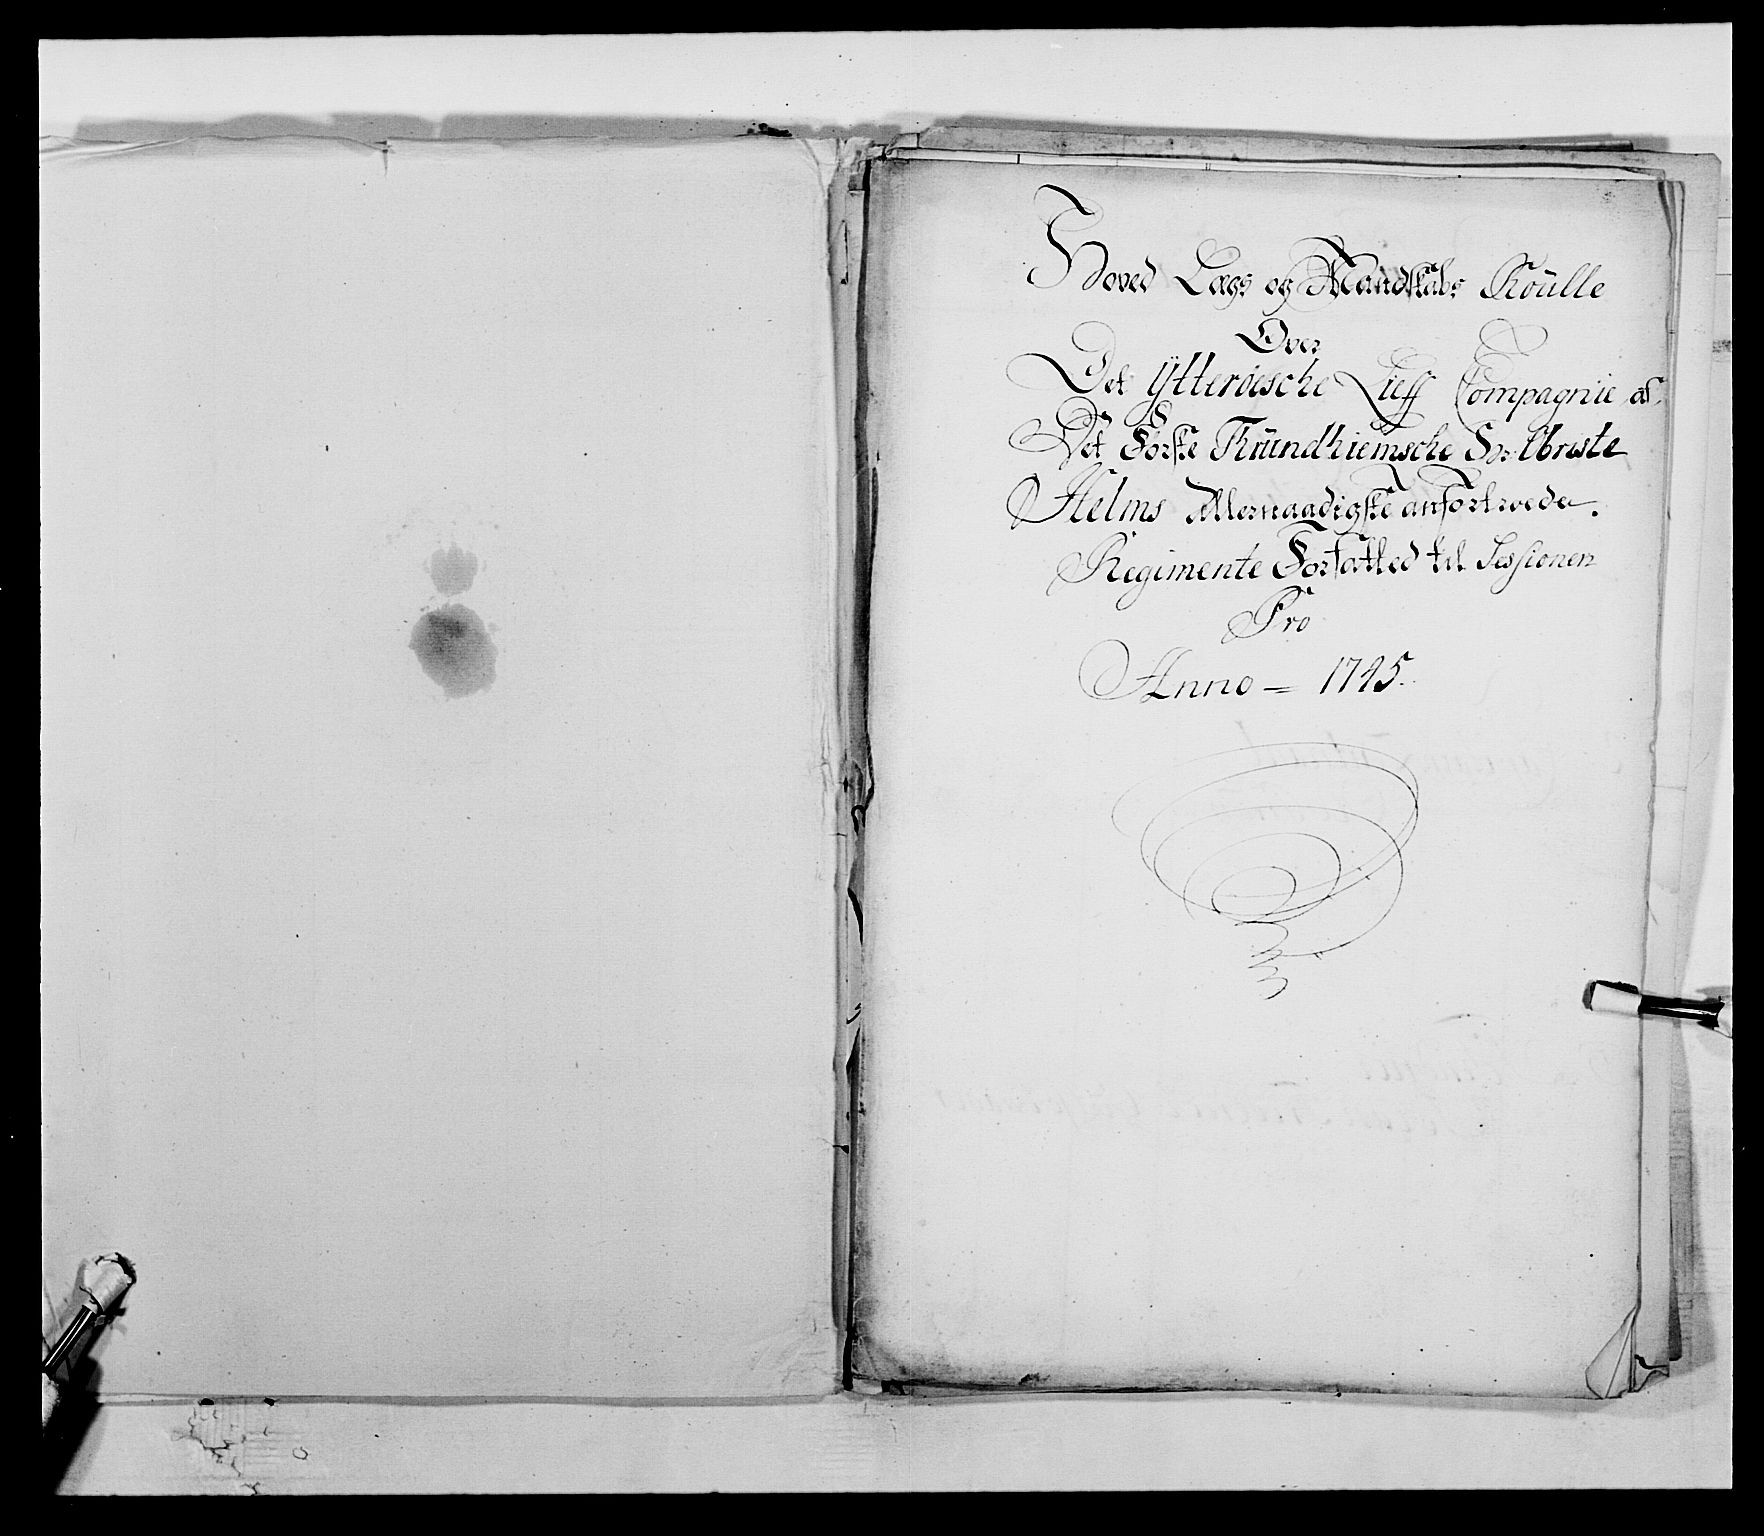 Hoved Lægs og Mandskabs Roülle
Over
Det Ÿtterøesche Lieff Compagnie af
Det Første Tründhiemsche Hr. Obriste
Helms Allernaadigste anfortroede
Regimente Forfatted til Sessionen
Pro
Anno = 1745.